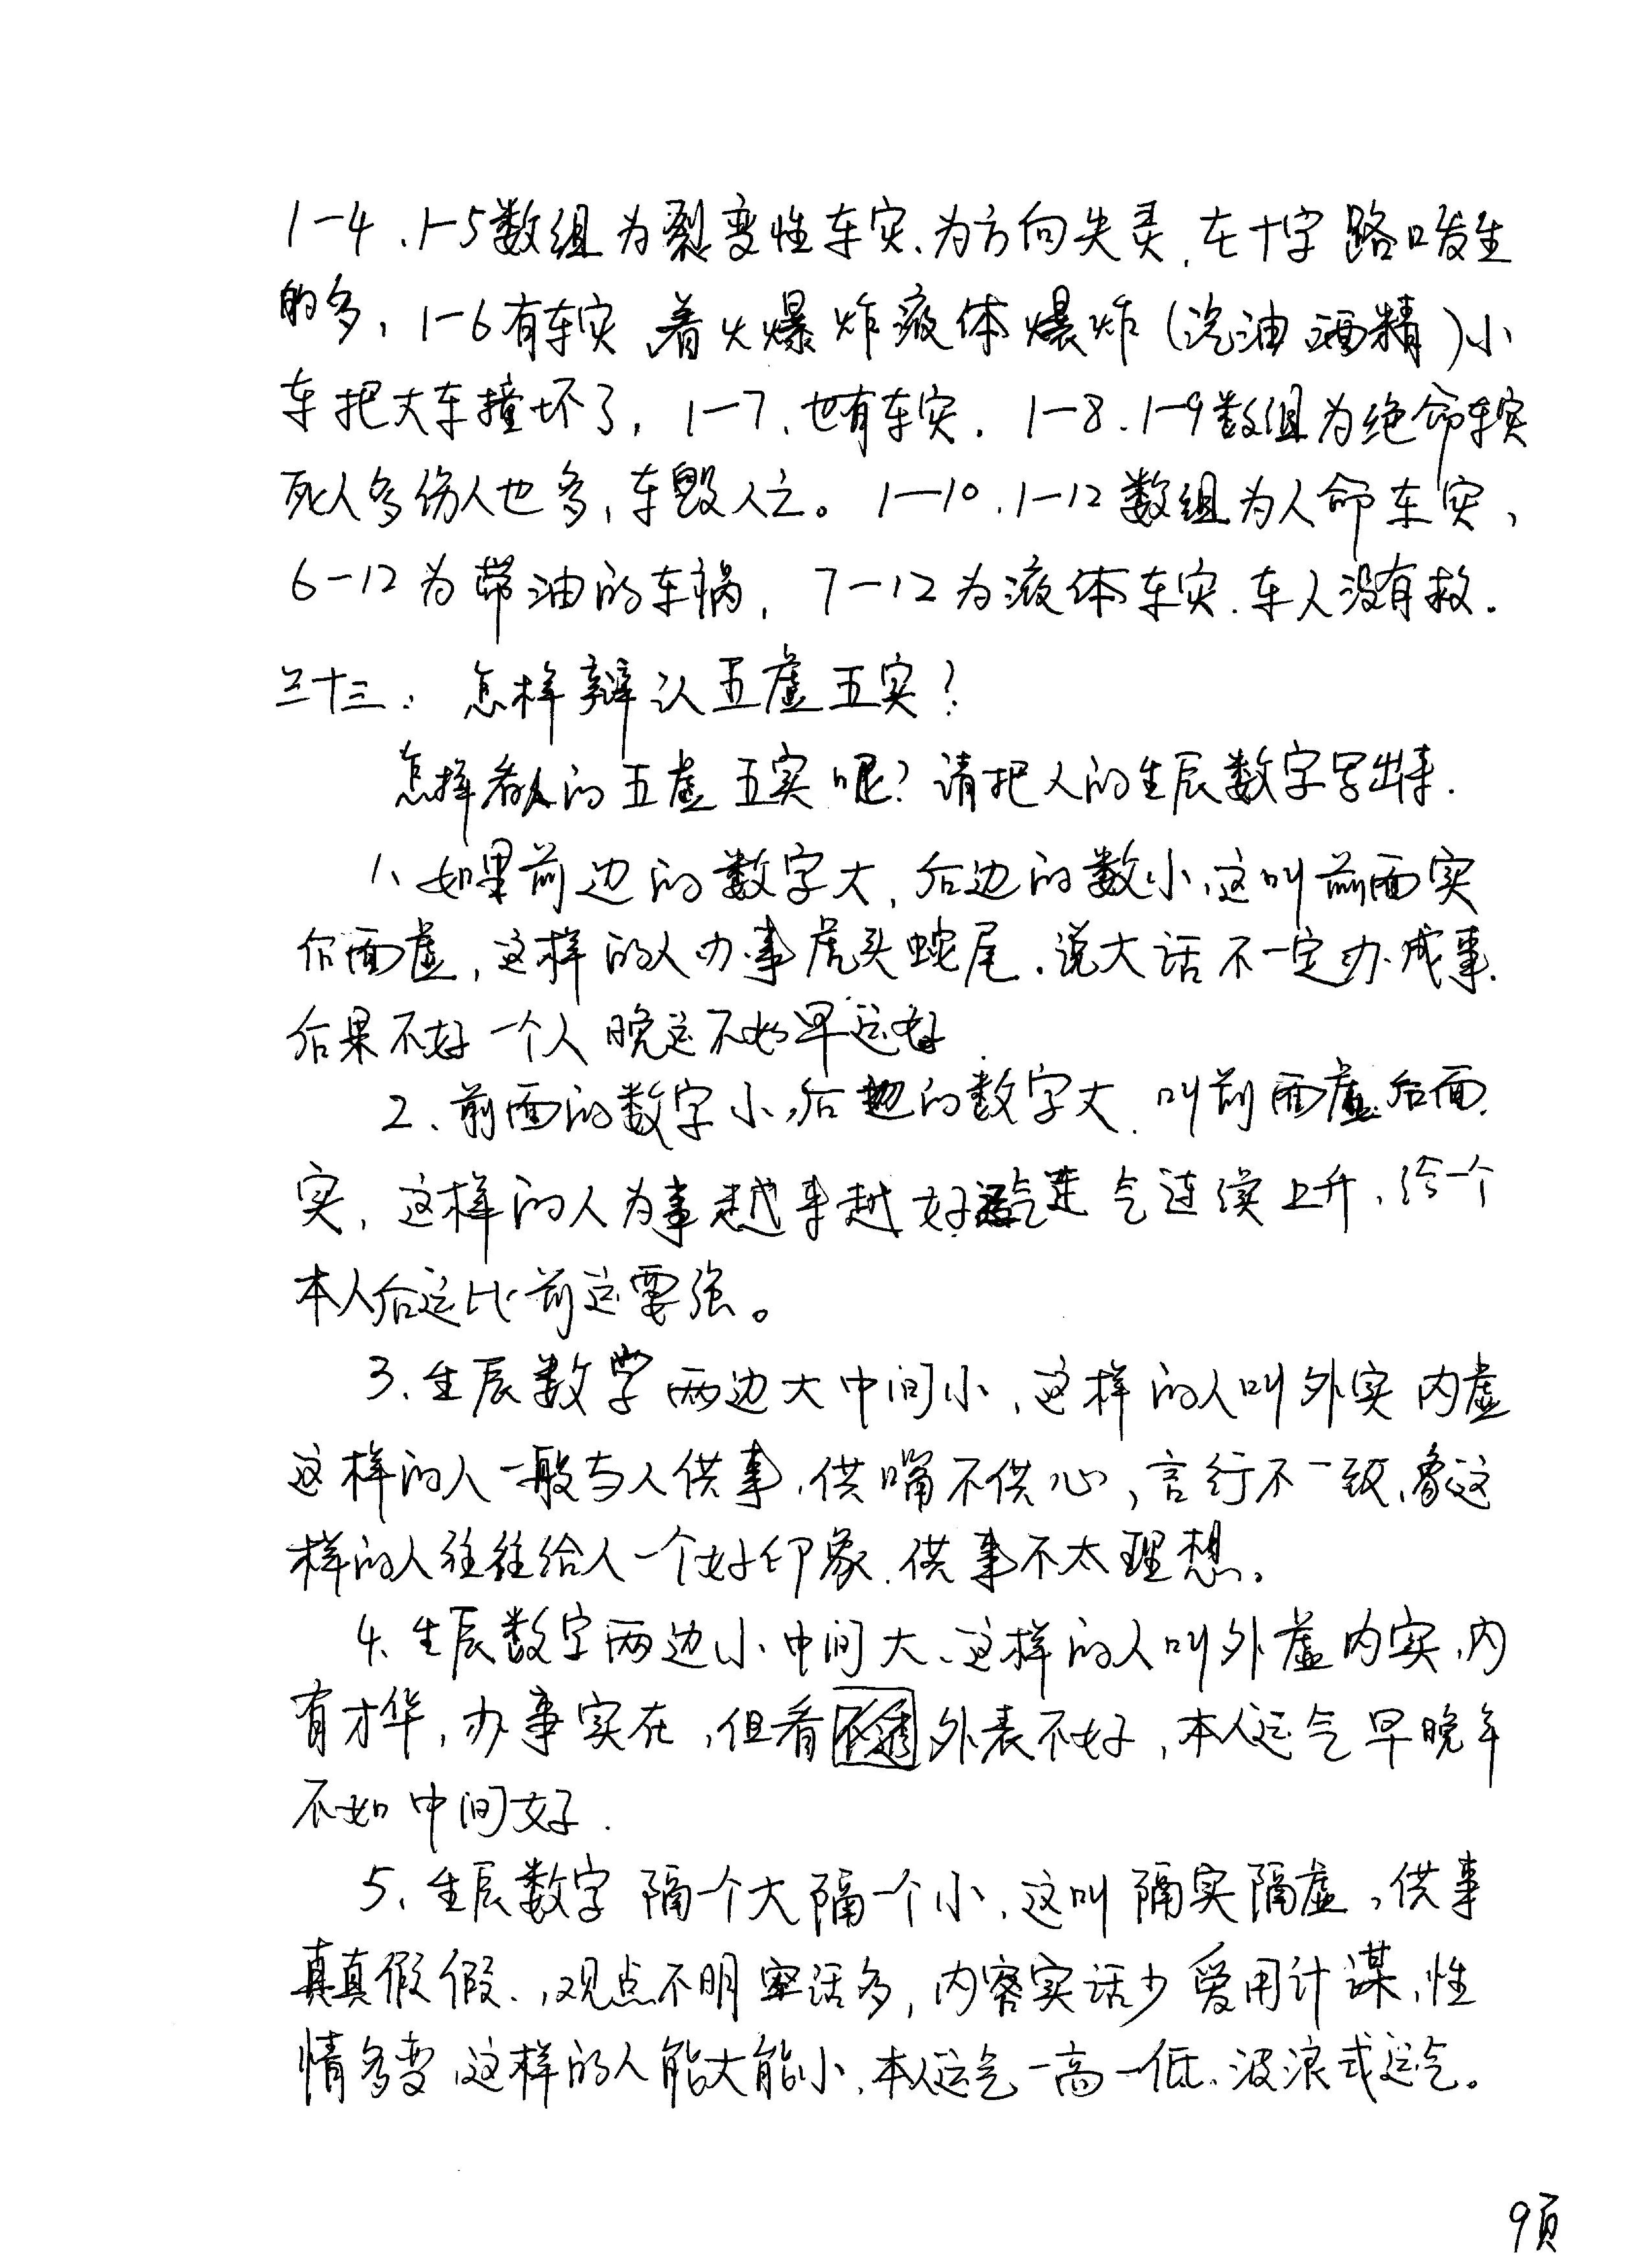 1-4、1-5数组为裂变性车灾、为方向失灵，在十字路口发生
的多，1-6有车灾，着火爆炸液体爆炸（汽油酒精）小
车把大车撞坏了，1-7、也有车灾．1-8、1-9数组为绝命车灾
死人多伤人也多，车毁人亡。1-10、1-12数组为人命车灾，
6-12为带油的车祸，7-12为液体车灾．车人没有救．
三十三：怎样辩认五虚五实？
怎样看人的五虚五实呢？请把人的生辰数字写出来．
1、如果前边的数字大，后边的数小，这叫前面实
后面虚，这样的人办事虎头蛇尾．说大话不一定办成事．
后果不好一个人晚运不如早运好
2、前面的数字小，后边的数字大．叫前面虚后面
实，这样的人为事越来越好，运气连续上升，给一个
本人后运比前运要强。
3、生辰数字两边大中间小，这样的人叫外实内虚
这样的人一般与人供事，供嘴不供心，言行不一致，像这
样的人往往给人一个好印象．供事不太理想。
4、生辰数字两边小中间大、这样的人叫外虚内实，内
有才华，办事实在，但看外表不好，本人运气早晚年
不如中间好．
5、生辰数字隔一个大隔一个小，这叫隔实隔虚，供事
真真假假．，观点不明 话多，内容实话少爱用计谋，性
情多变，这样的人能大能小，本人运气一高一低、波浪式运气。
9页